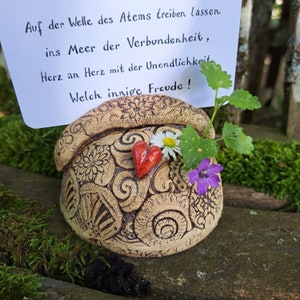 Auf der Welle des Atems treiben lassen
ins Meer der Verbundenheit,
Herz an Herz mit der Unendlichkeit.
Welch innige Freude!